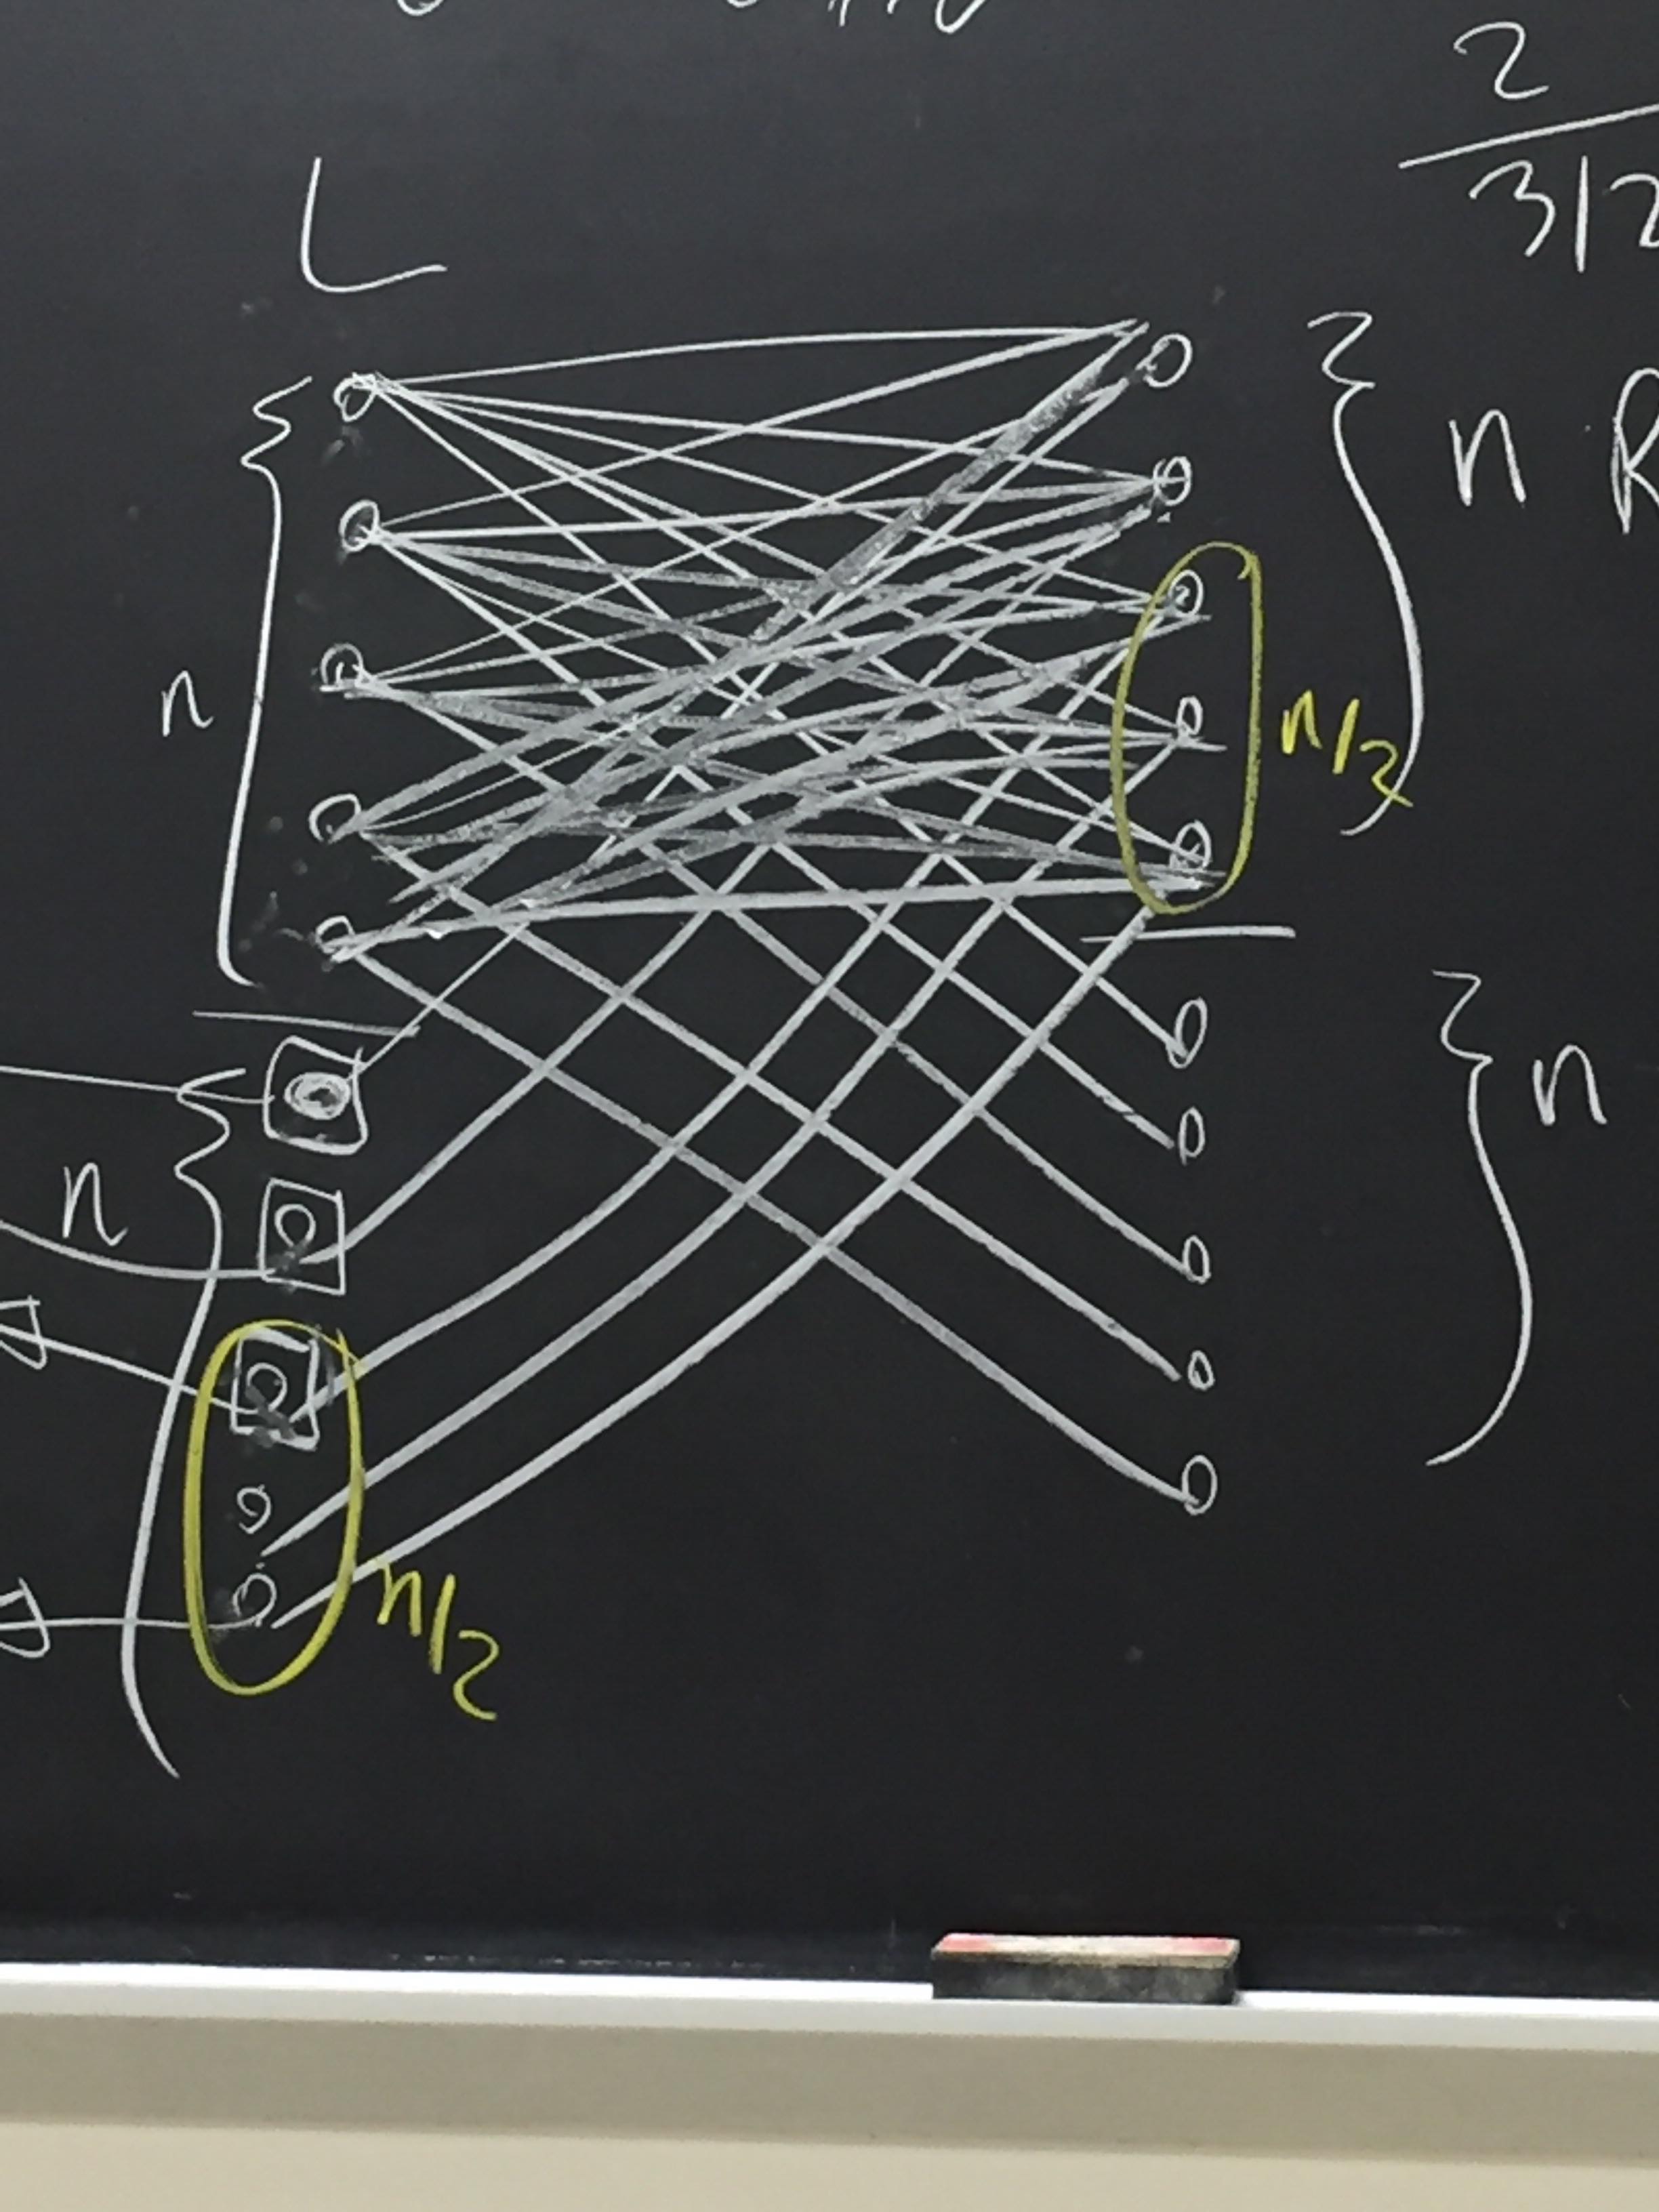 2
3/2
L
n
n R
n/2
n
n
n/2